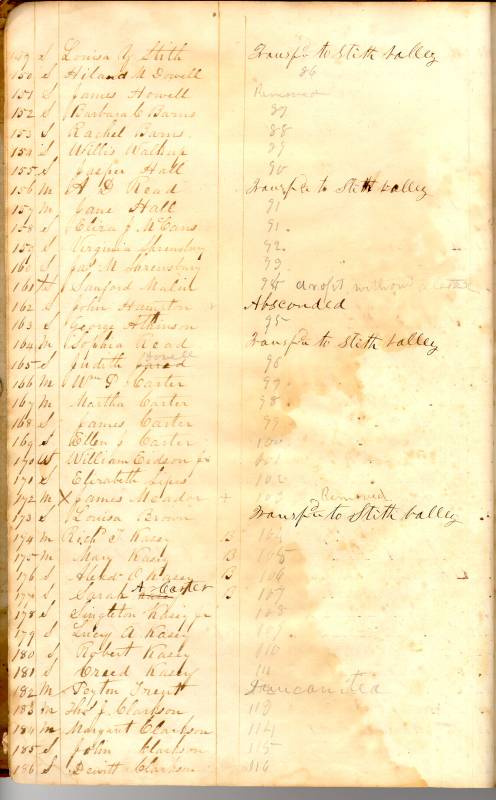 149 S Louisa Y Stith Transfd to Stith valley
150 S Hiland M Dowell 86
151 S James Howell Removed
152 S Barbara C Barns 87
153 S Rachel Barns 88
154 S Willis Walkup 89
155 S Jasper Hall 90
156 M A D Read Transfd to Stith valley
157 M Jane Hall 91
158 S Eliza J McCans 91
159 S Virginia Shrewsbury 92
160 S Jas M Shrewsbury 93
161 S Sanford Malin 94 dropt without a
162 S John Hampton Absconded
163 S George Atkinson 95
164 M Sophia Read Transfd to Stith valley
165 S Judith 96
166 M Wm D Carter 97
167 M Martha Carter 98
168 S James Carter 99
169 S Ellen S Carter 100
170 W William Eidson jr 101
171 S Elizabeth Sipes 102
172 M X James Meador + 103 Removed
173 S Louisa Brown Transfd to Stith valley
174 M Rich T Kasey B 104
175 M Mary Kasey B 105
176 S Alexd O Kasey B 106
177 S Sarah A Carter B 107
178 S Singleton Kasey jr 108
179 S Lucy A Kasey 109
180 S Robert Kasey 110
181 S Creed Kasey 111
182 M Peyton Trent
183 M Thos J. Clarkson 113
184 M Margart Clarkson 114
185 S John Clarkson 115
186 S Dewitt Clarkson 116